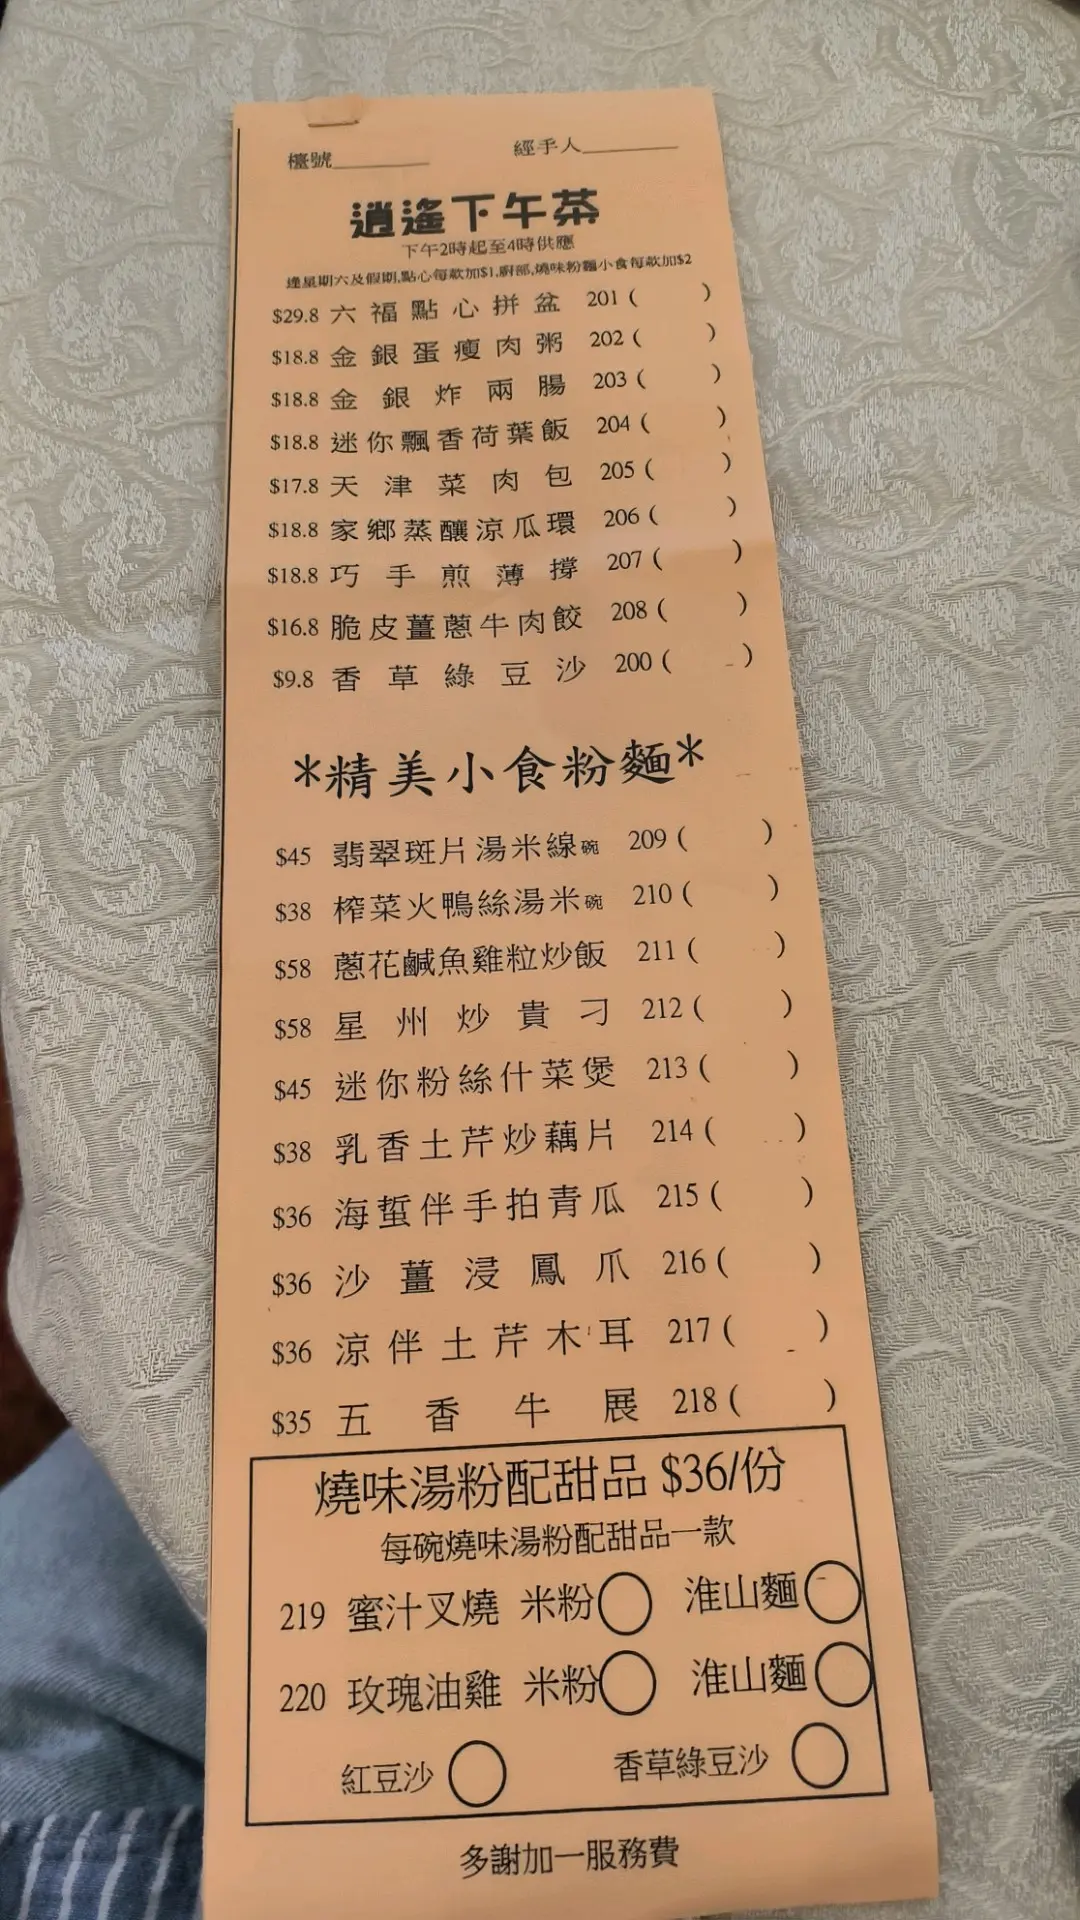 檯號________ 經手人________
逍遙下午茶
下午2時起至4時供應
逢星期六及假期,點心每款加$1,廚部,燒味粉麵小食每款加$2
$29.8 六福點心拼盆 201 ( )
$18.8 金銀蛋瘦肉粥 202 ( )
$18.8 金銀炸兩腸 203 ( )
$18.8 迷你飄香荷葉飯 204 ( )
$17.8 天津菜肉包 205 ( )
$18.8 家鄉蒸釀涼瓜環 206 ( )
$18.8 巧手煎薄撐 207 ( )
$16.8 脆皮薑蔥牛肉餃 208 ( )
$9.8 香草綠豆沙 200 ( )
*精美小食粉麵*
$45 翡翠斑片湯米線碗 209 ( )
$38 榨菜火鴨絲湯米碗 210 ( )
$58 蔥花鹹魚雞粒炒飯 211 ( )
$58 星州炒貴刁 212 ( )
$45 迷你粉絲什菜煲 213 ( )
$38 乳香土芹炒藕片 214 ( )
$36 海蜇伴手拍青瓜 215 ( )
$36 沙薑浸鳳爪 216 ( )
$36 涼伴土芹木耳 217 ( )
$35 五香牛展 218 ( )
燒味湯粉配甜品 $36/份
每碗燒味湯粉配甜品一款
219 蜜汁叉燒 米粉 淮山麵
220 玫瑰油雞 米粉 淮山麵
紅豆沙 香草綠豆沙
多謝加一服務費